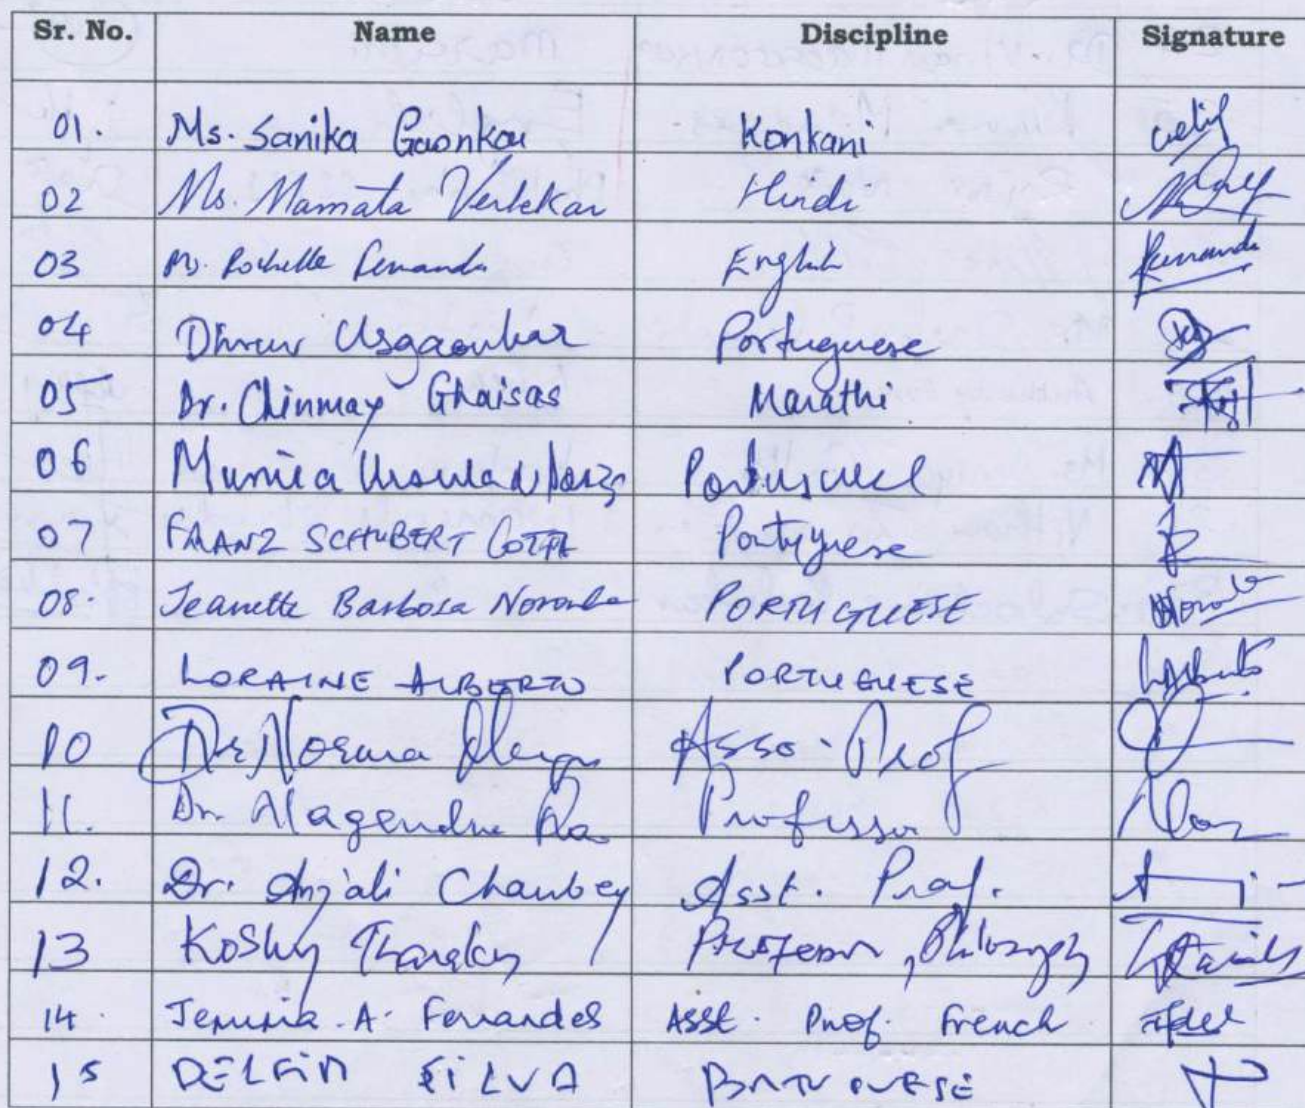 Sr. No. Name Discipline Signature
01. Ms. Sanika Gaonkar Konkani
02 Ms. Mamata Verlekar Hindi
03 Ms. Rochelle Fernandes English Fernandes
04 Dhruv Usgaonkar Portuguese
05 Dr. Chinmay Ghaisas Marathi
06 Ursula Portuguese
07 FRANZ SCHUBERT COTTA Portuguese
08. Jeanette Barbosa Noronha PORTUGUESE
09. LORAINE ALBERTO PORTUGUESE LAlberto
10 Dr Norma Asso. Prof
11. Dr. Nagendra Rao Professor
12. Dr. Anjali Chaubey Asst. Prof.
13 Koshy Tharakan Professor, Philosophy
14. A. Fernandes Asst. Prof. French
15 DELFIM SILVA